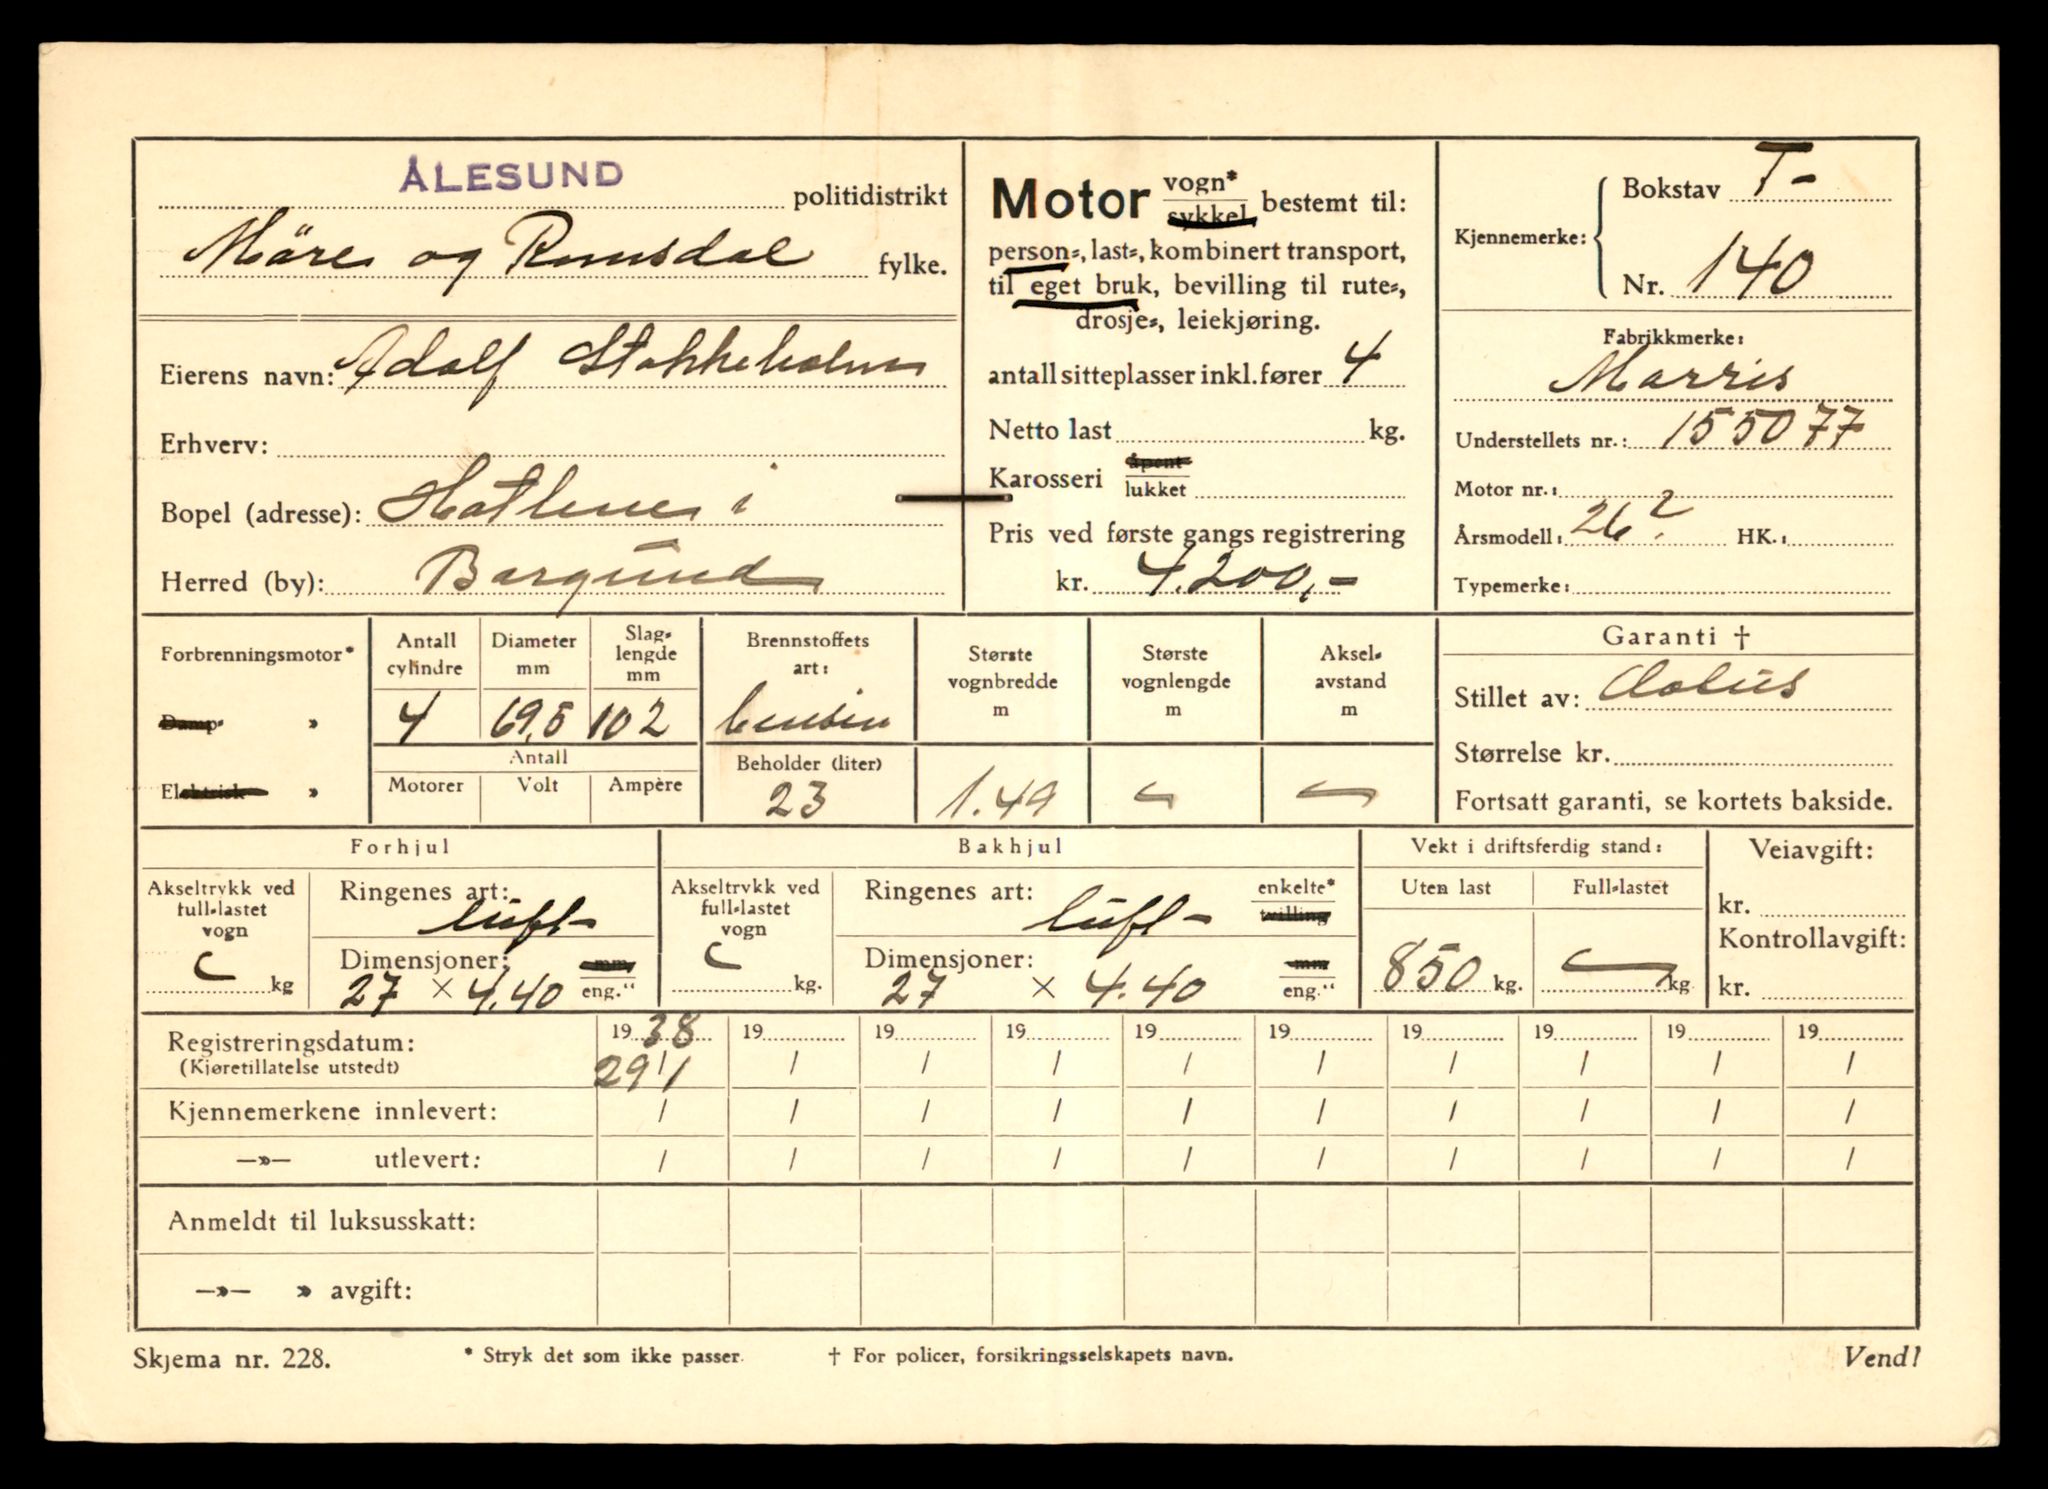 ÅLESUND politidistrikt
Möre og Romsdal fylke.
Eierens navn: Adolf Stokkeholm
Erhverv:
Bopel (adresse): Hatlene i
Herred (by): Borgund
Motor vogn* sykkel bestemt til:
person-, last-, kombinert transport,
til eget bruk, bevilling til rute-,
drosje-, leiekjøring.
antall sitteplasser inkl. fører 4
Netto last kg.
Karosseri åpent lukket
Pris ved første gangs registrering
kr. 4.200,-
Kjennemerke: Bokstav T-
Nr. 140
Fabrikkmerke:
Morris
Understellets nr.: 155077
Motor nr.:
Årsmodell: 26? HK.:
Typemerke:
Forbrenningsmotor*
Damp- »
Elektrisk »
Antall cylindre
4
Diameter mm
69,5
Slag-lengde mm
102
Antall
Motorer Volt Ampère
Brennstoffets art:
bensin
Beholder (liter)
23
Største vognbredde m
1.49
Største vognlengde m
Aksel-avstand m
Garanti †
Stillet av: Aolus
Størrelse kr.
Fortsatt garanti, se kortets bakside.
Forhjul
Akseltrykk ved full-lastet vogn
kg
Ringenes art:
luft-
Dimensjoner: mm
27 × 4.40 eng."
Bakhjul
Akseltrykk ved full-lastet vogn
kg.
Ringenes art: enkelte* tvilling
luft-
Dimensjoner: mm
27 × 4.40 eng."
Vekt i driftsferdig stand:
Uten last Full-lastet
850 kg. kg.
Veiavgift:
kr.
Kontrollavgift:
kr.
Registreringsdatum: 1938 19 19 19 19 19 19 19 19 19
(Kjøretillatelse utstedt) 29/1 / / / / / / / / /
Kjennemerkene innlevert: / / / / / / / / / /
—»— utlevert: / / / / / / / / / /
Anmeldt til luksusskatt:
—»— » avgift:
Skjema nr. 228. * Stryk det som ikke passer. † For policer, forsikringsselskapets navn. Vend!